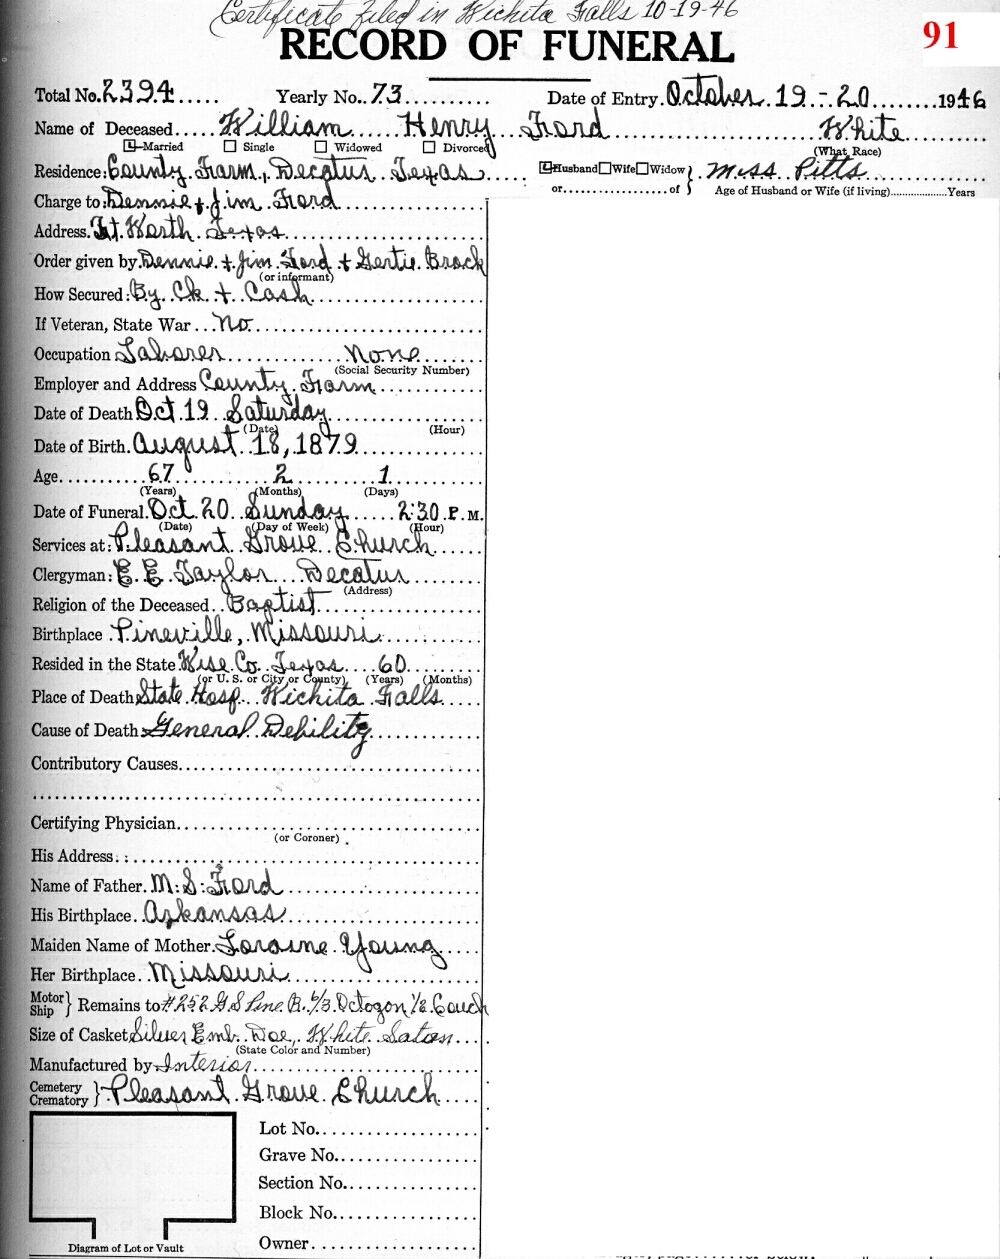 Certificate filed in Wichita Falls 10-19-46
RECORD OF FUNERAL
91
Total No. 2394 Yearly No. 73 Date of Entry October 19-20 1946
Name of Deceased William Henry Ford White
Married Single Widowed Divorced (What Race)
Residence: County Farm, Decatur Texas Husband Wife Widow } Miss Pitts
or of } Age of Husband or Wife (if living) Years
Charge to: Dennie + Jim Ford
Address. Ft. Worth Texas
Order given by Dennie + Jim Ford + Gertie Brock
(or informant)
How Secured: By Ck + Cash
If Veteran, State War No
Occupation Laborer None
(Social Security Number)
Employer and Address County Farm
Date of Death Oct 19 Saturday
(Date) (Hour)
Date of Birth. August 18, 1879
Age 67 2 1
(Years) (Months) (Days)
Date of Funeral. Oct 20 Sunday 2:30 P.M.
(Date) (Day of Week) (Hour)
Services at: Pleasant Grove Church
Clergyman: E. E. Taylor Decatur
(Address)
Religion of the Deceased Baptist
Birthplace Pineville, Missouri
Resided in the State Wise Co. Texas 60
(or U. S. or City or County) (Years) (Months)
Place of Death State Hosp. Wichita Falls
Cause of Death General Debility
Contributory Causes
Certifying Physician
(or Coroner)
His Address
Name of Father. M. S. Ford
His Birthplace Arkansas
Maiden Name of Mother. Loraine Young
Her Birthplace Missouri
Motor Ship } Remains to #252 G S Pine B. 6/3 Octogon 1/2 Couch
Size of Casket Silver Emb. Doe, White Satan
(State Color and Number)
Manufactured by Interior
Cemetery Crematory } Pleasant Grove Church
Lot No.
Grave No.
Section No.
Block No.
Owner
Diagram of Lot or Vault